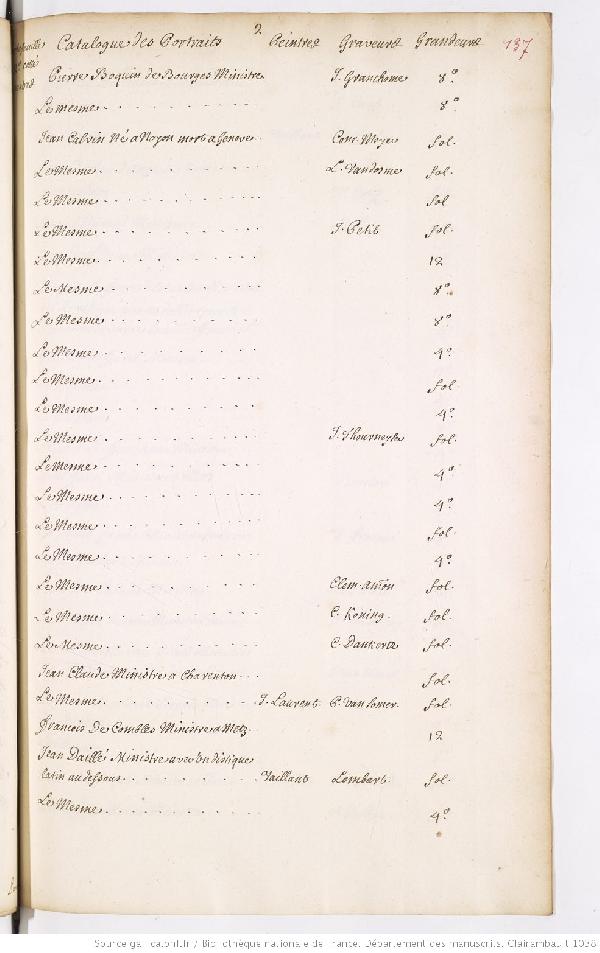 2
Catalogue des Portraits Peintres Graveurs Grandeurs 137
Pierre Boquin de Bourges Ministre J. Granthome 8°
Le mesme 8°
Jean Calvin Né a Noyon mort a Geneve Conr. Meyer fol.
Le Mesme L. Vandosme fol.
Le Mesme fol
Le Mesme J. Petit fol.
Le Mesme 12
Le Mesme 8°
Le Mesme 8°
Le Mesme 4°
Le Mesme fol.
Le Mesme 4°
Le Mesme J. Thourneyse fol.
Le Mesme 4°
Le Mesme 4°
Le Mesme fol.
Le Mesme 4°
Le Mesme Clem. fol.
Le Mesme C. Koning fol.
Le Mesme C. Dankertz fol.
Jean Claude Ministre a Charenton fol.
Le Mesme J. Laurent P. Van Somer fol.
François De Combles Ministre a Metz 12
Jean Daillé Ministre avec un distique
latin au dessous Vaillant Lombart fol.
Le Mesme 4°
Source gallica.bnf.fr / Bibliothèque nationale de France. Département des manuscrits. Clairambault 1038